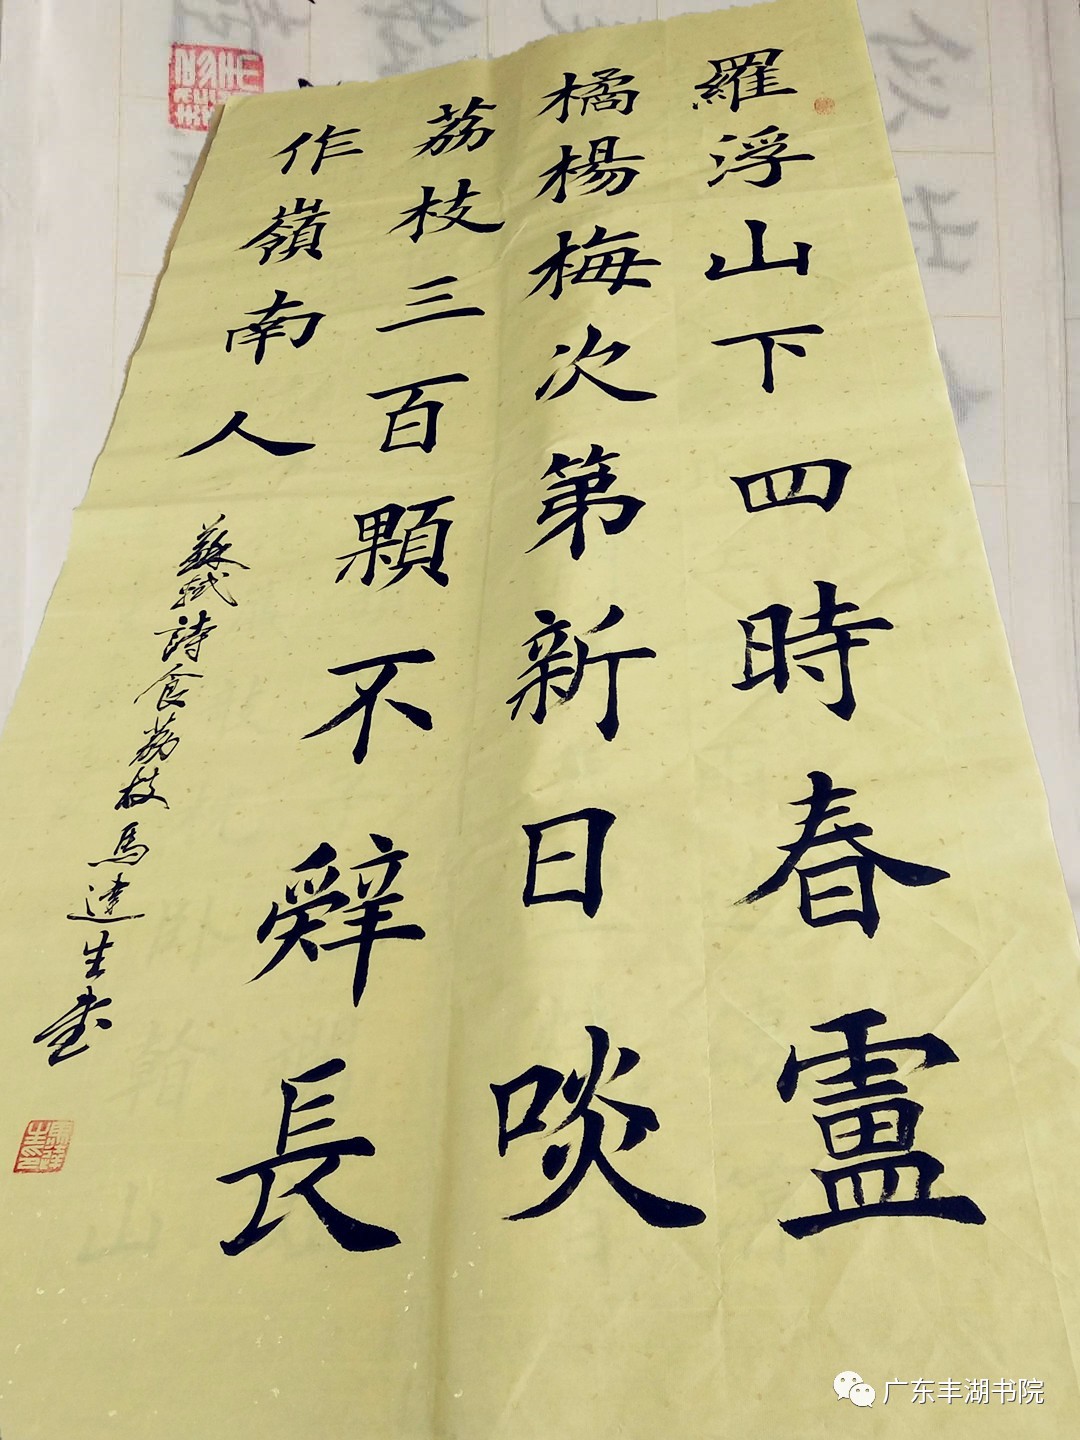 羅浮山下四時春盧
橘楊梅次第新日啖
荔枝三百顆不辭長
作嶺南人
蘇軾詩食荔枝馬達生書
广东丰湖书院